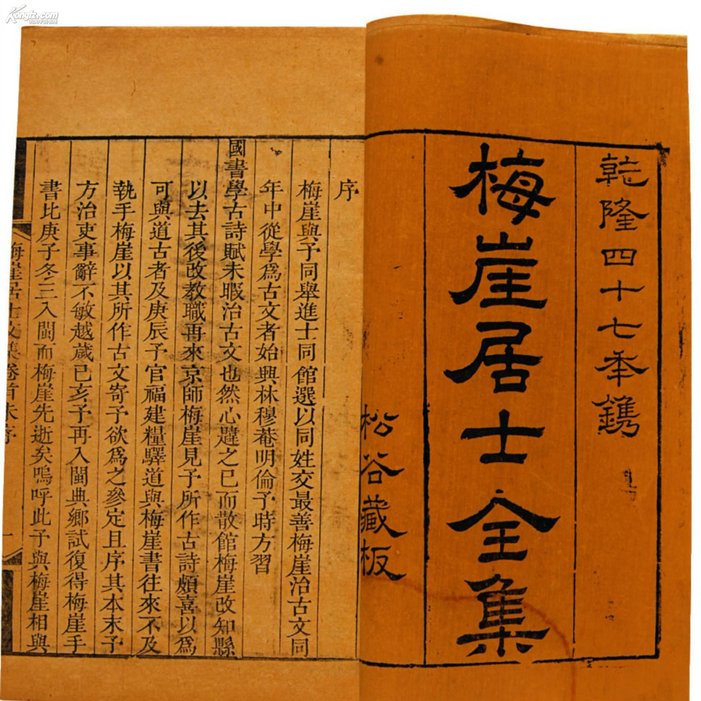 乾隆四十七年鐫
梅崖居士全集
松谷藏板
序
梅崖與予同舉進士同館選以同姓交最善梅崖治古文同
年中從學爲古文者始與林穆菴明倫予時方習
國書學古詩賦未暇治古文也然心韙之已而散館梅崖改知縣
以去其後改教職再來京師梅崖見予所作古詩頗喜以爲
可與道古者及庚辰予官福建糧驛道與梅崖書往來不及
執手梅崖以其所作古文寄予欲爲之參定且序其本末予
方治吏事辭不敏越歲已亥予再入閩典鄉試復得梅崖手
書比庚子冬三入閩而梅崖先逝矣嗚呼此予與梅崖相與
梅崖居士文集卷首朱序
一
Kongfz.com